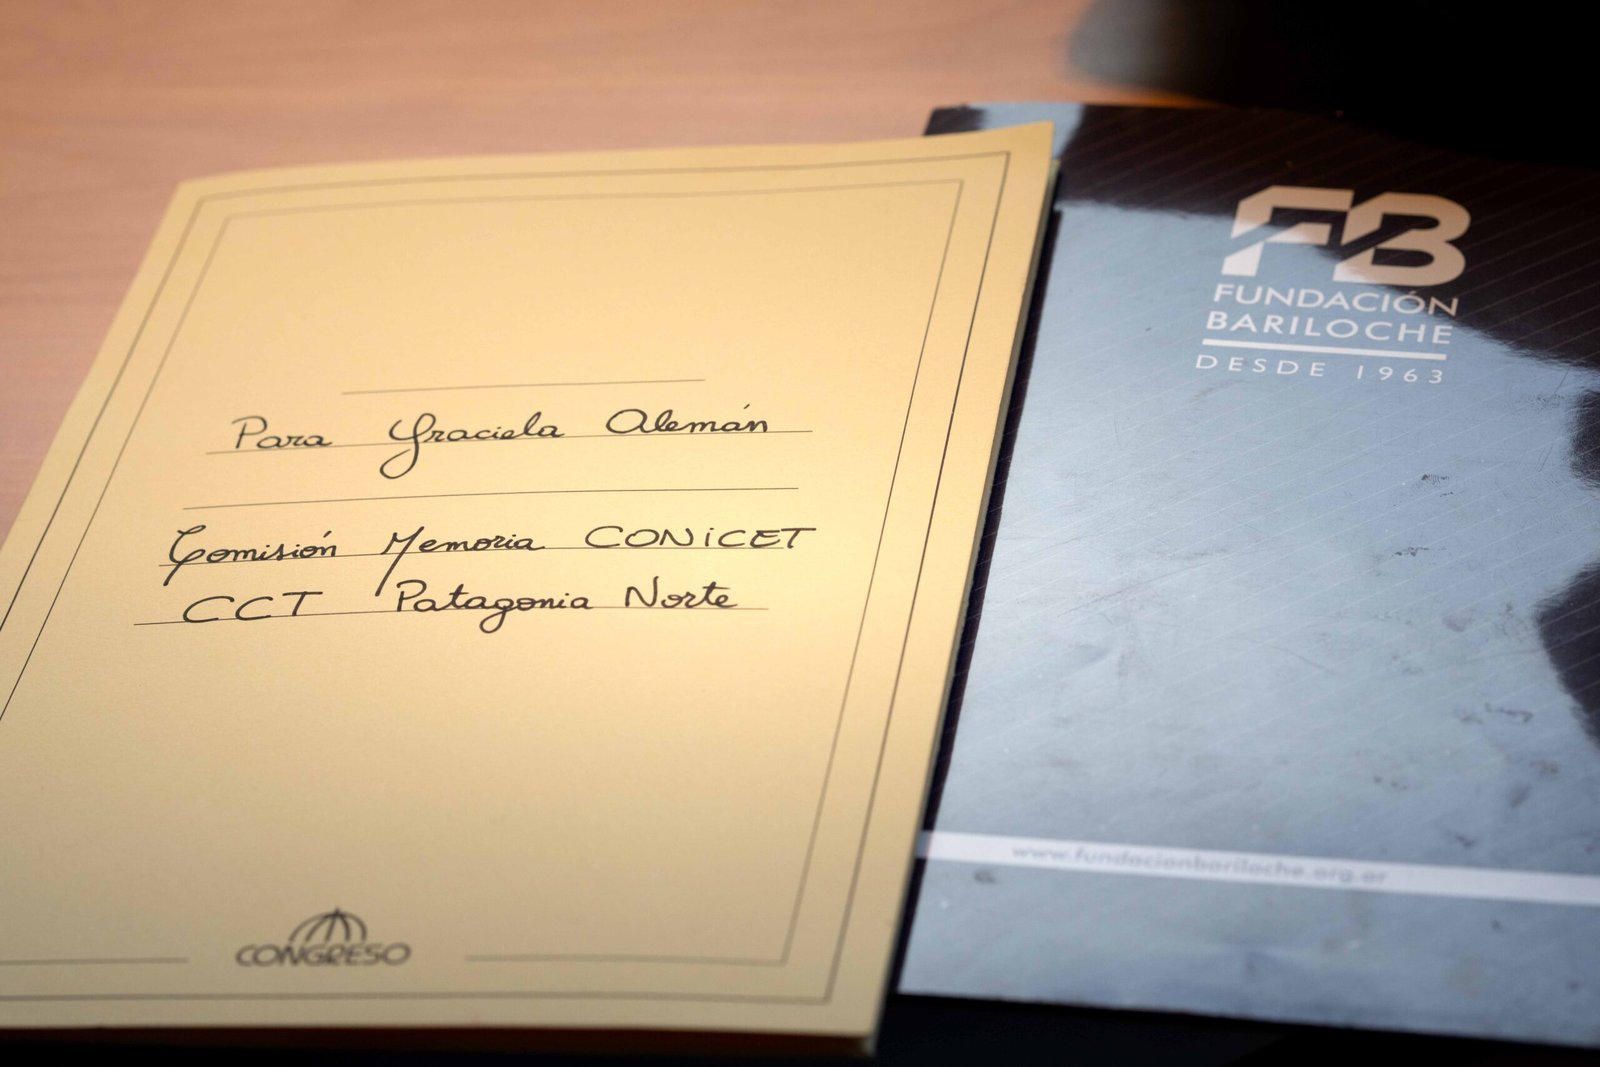 Para Graciela Alemán
Comisión Memoria CONiCET
CCT Patagonia Norte
CONGRESO
FB
FUNDACIÓN
BARILOCHE
DESDE 1963
www.fundacionbariloche.org.ar